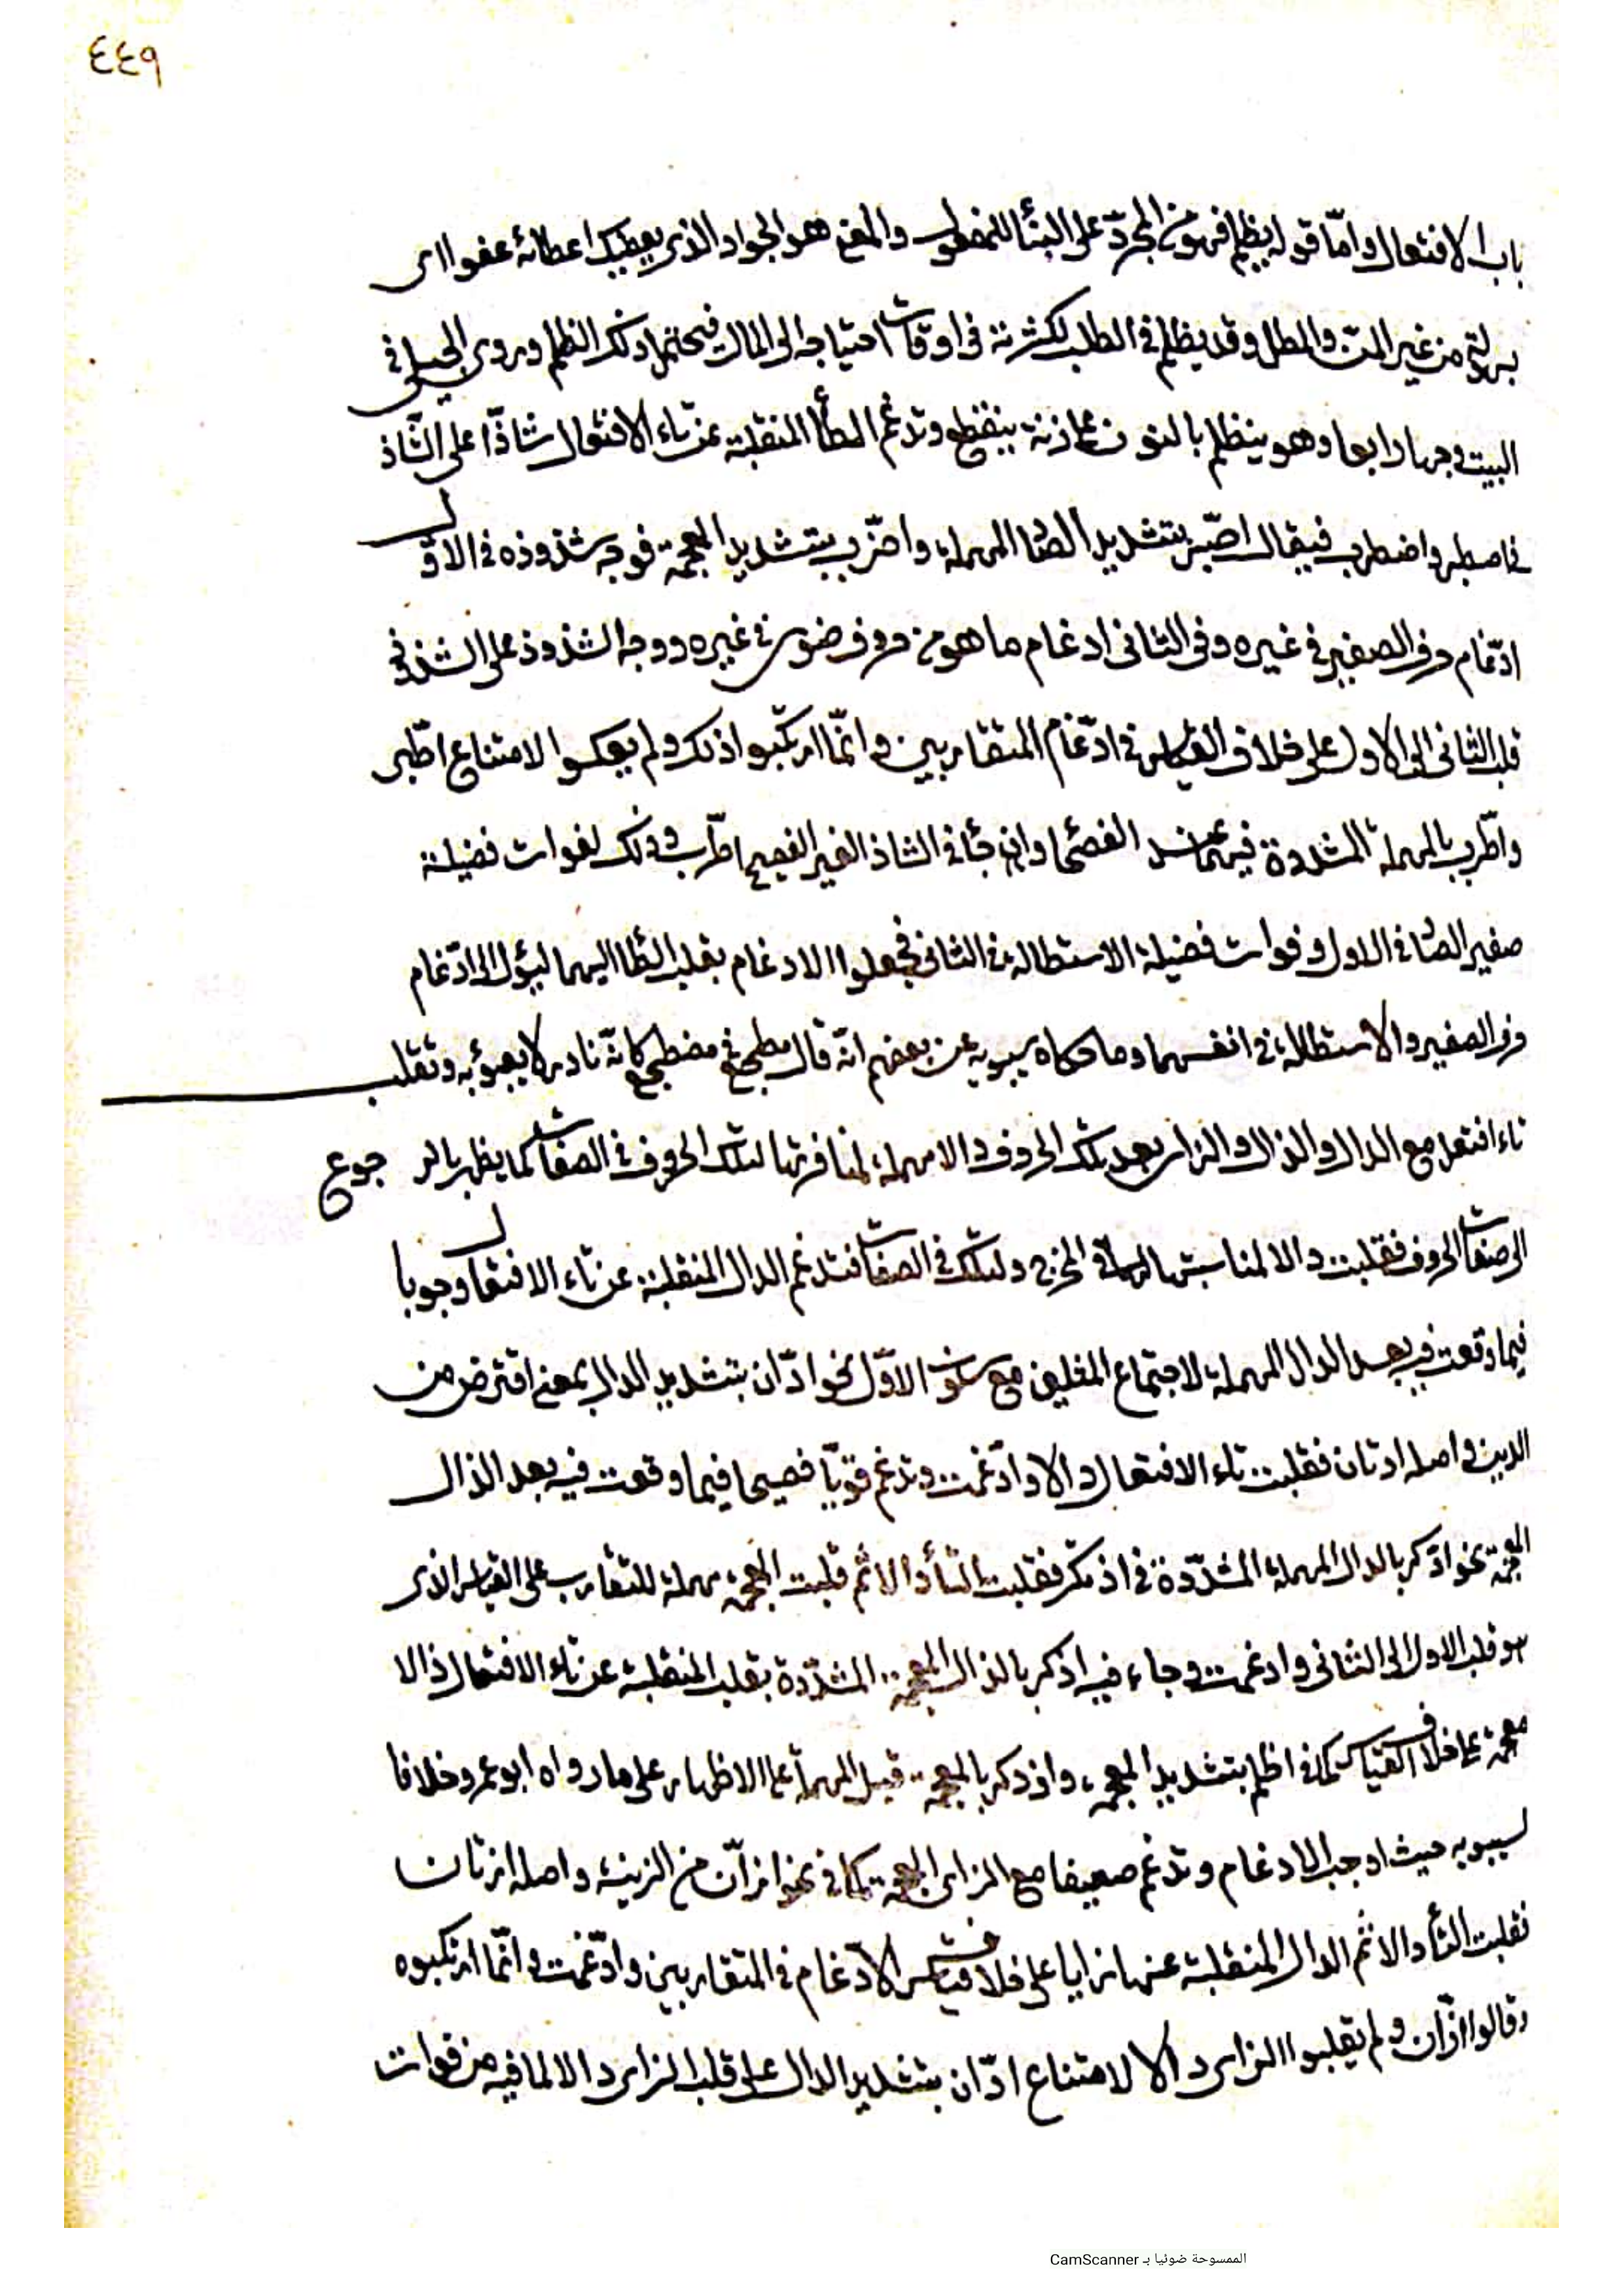 ٤٤٩
باب الافتعال واما قوله يظلم فهو من المجرّد على البنأ للمفعول والمعنى هو الجواد الذى يعطيك اعطائه عفوا اى
بسهولة من غير المنّ والمطل وقد يظلم فى الطلب لكثرته فى اوقات احتياجه الى المال فيحتمل ذلك الظلم وروى الجبل فى
البيت وجها رابعا وهو ينظلم بالنون على زنة ينقطع وتدغم الطأ المنقلبة عن تاء الافتعال شاذّا على الشّاذ
فى اصطبر واضطرب فيقال اصّبر بتشديد الصّا المهملة واضّرب بتشديد المعجمة فوجه شذوذه فى الاوّل
ادّغام حرف الصفير فى غيره وفى الثانى ادغام ما هو من حروف ضوى فى غيره ووجه الشذوذ على الشذوذ
قلب الثانى الى الاول على خلاف القياس فى ادّغام المتقاربين وانّما ارتكبوا ذلك ولم يعكسوا لامتناع اطّبر
واطّرب بالمهملة المشددة فيهما عند الفصحا وان جأ فى الشاذ الغير الفصيح اطّرب وذلك لفوات فضيلة
صفير الصّا فى الاول وفوات فضيلة الاستطالة فى الثانى فجعلوا الادغام بقلب الطّا اليهما ليؤل الى ادّغام
حرف الصفير والاستطالة فى انفسهما وما حكاه سيبويه عن بعضهم انّه قال مطجع فى مضطجع كانّه نادر لا يعبؤ به وتقلب
تاء افتعل مع الدال والذال والزاى بعد تلك الحروف دالا مهملة لمنافرتها لتلك الحروف فى الصفات كما يظهر بالرجوع
الى صفات الحروف فقلبت دالا لمناسبتها لها فى المخرج ولتلك فى الصفات فتدغم الدال المنقلبة عن تاء الافتعال وجوبا
فيما وقعت فيه بعد الدال المهملة لاجتماع المثلين مع سكون الاوّل نحو ادّان بتشديد الدال بمعنى اقترض من
الدين واصله ادتان فقلبت تاء الافتعال دالا وادّغمت وتدغم قويّا فصيحا فيما وقعت فيه بعد الذال
المعجمة نحو ادّكر بالدال المهملة المشدّدة فى اذتكر فقلبت التأ دالا ثم قلبت المعجمة مهملة للتقارب على القياس الذى
هو قلب الاول الى الثانى وادغمت وجاء فيه اذّكر بالذال المعجمة المشدّدة بقلب المنقلبة عن تاء الافتعال ذالا
معجمة على خلاف القياس كما فى اظلم بتشديد المعجمة، واذدكر بالمعجمة قبل المهملة على الاظهار على ما رواه ابو عمرو خلافا
لسيبويه حيث اوجب الادغام وتدغم ضعيفا مع الزاى المعجمة كما فى نحو ازّان من الزينة واصله ازتان
فقلبت التأ دالا ثم الدال المنقلبة عنها زايا على خلاف قياس الادّغام فى المتقاربين وادّغمت وانّما ارتكبوه
وقالوا ازّان ولم يقلبوا الزاى دالا لامتناع ادّان بتشديد الدال على قلب الزاى دالا لما فيه من فوات
الممسوحة ضوئيا بـ CamScanner